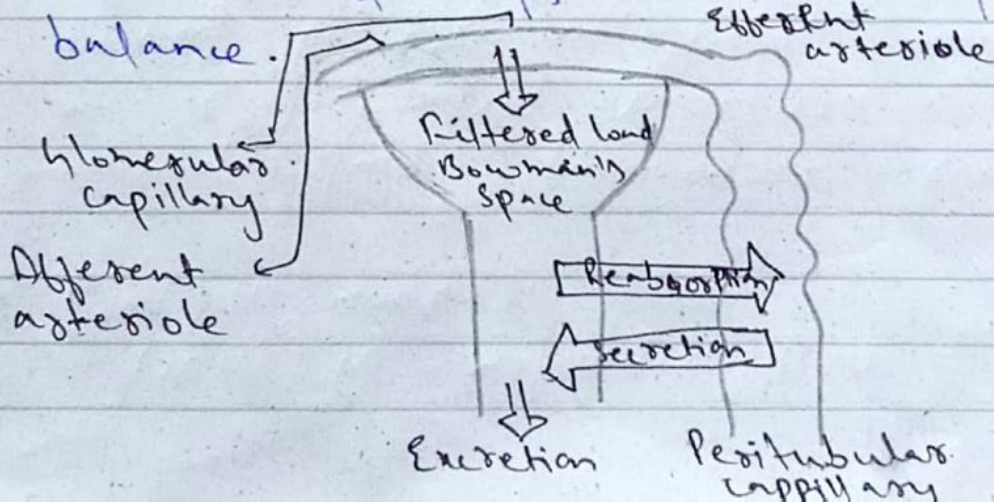 balance.
Efferent
arteriole
Glomerular
capillary
Afferent
arteriole
Filtered load
Bowman's
Space
Reabsorption
Secretion
Excretion
Peritubular
cappillary